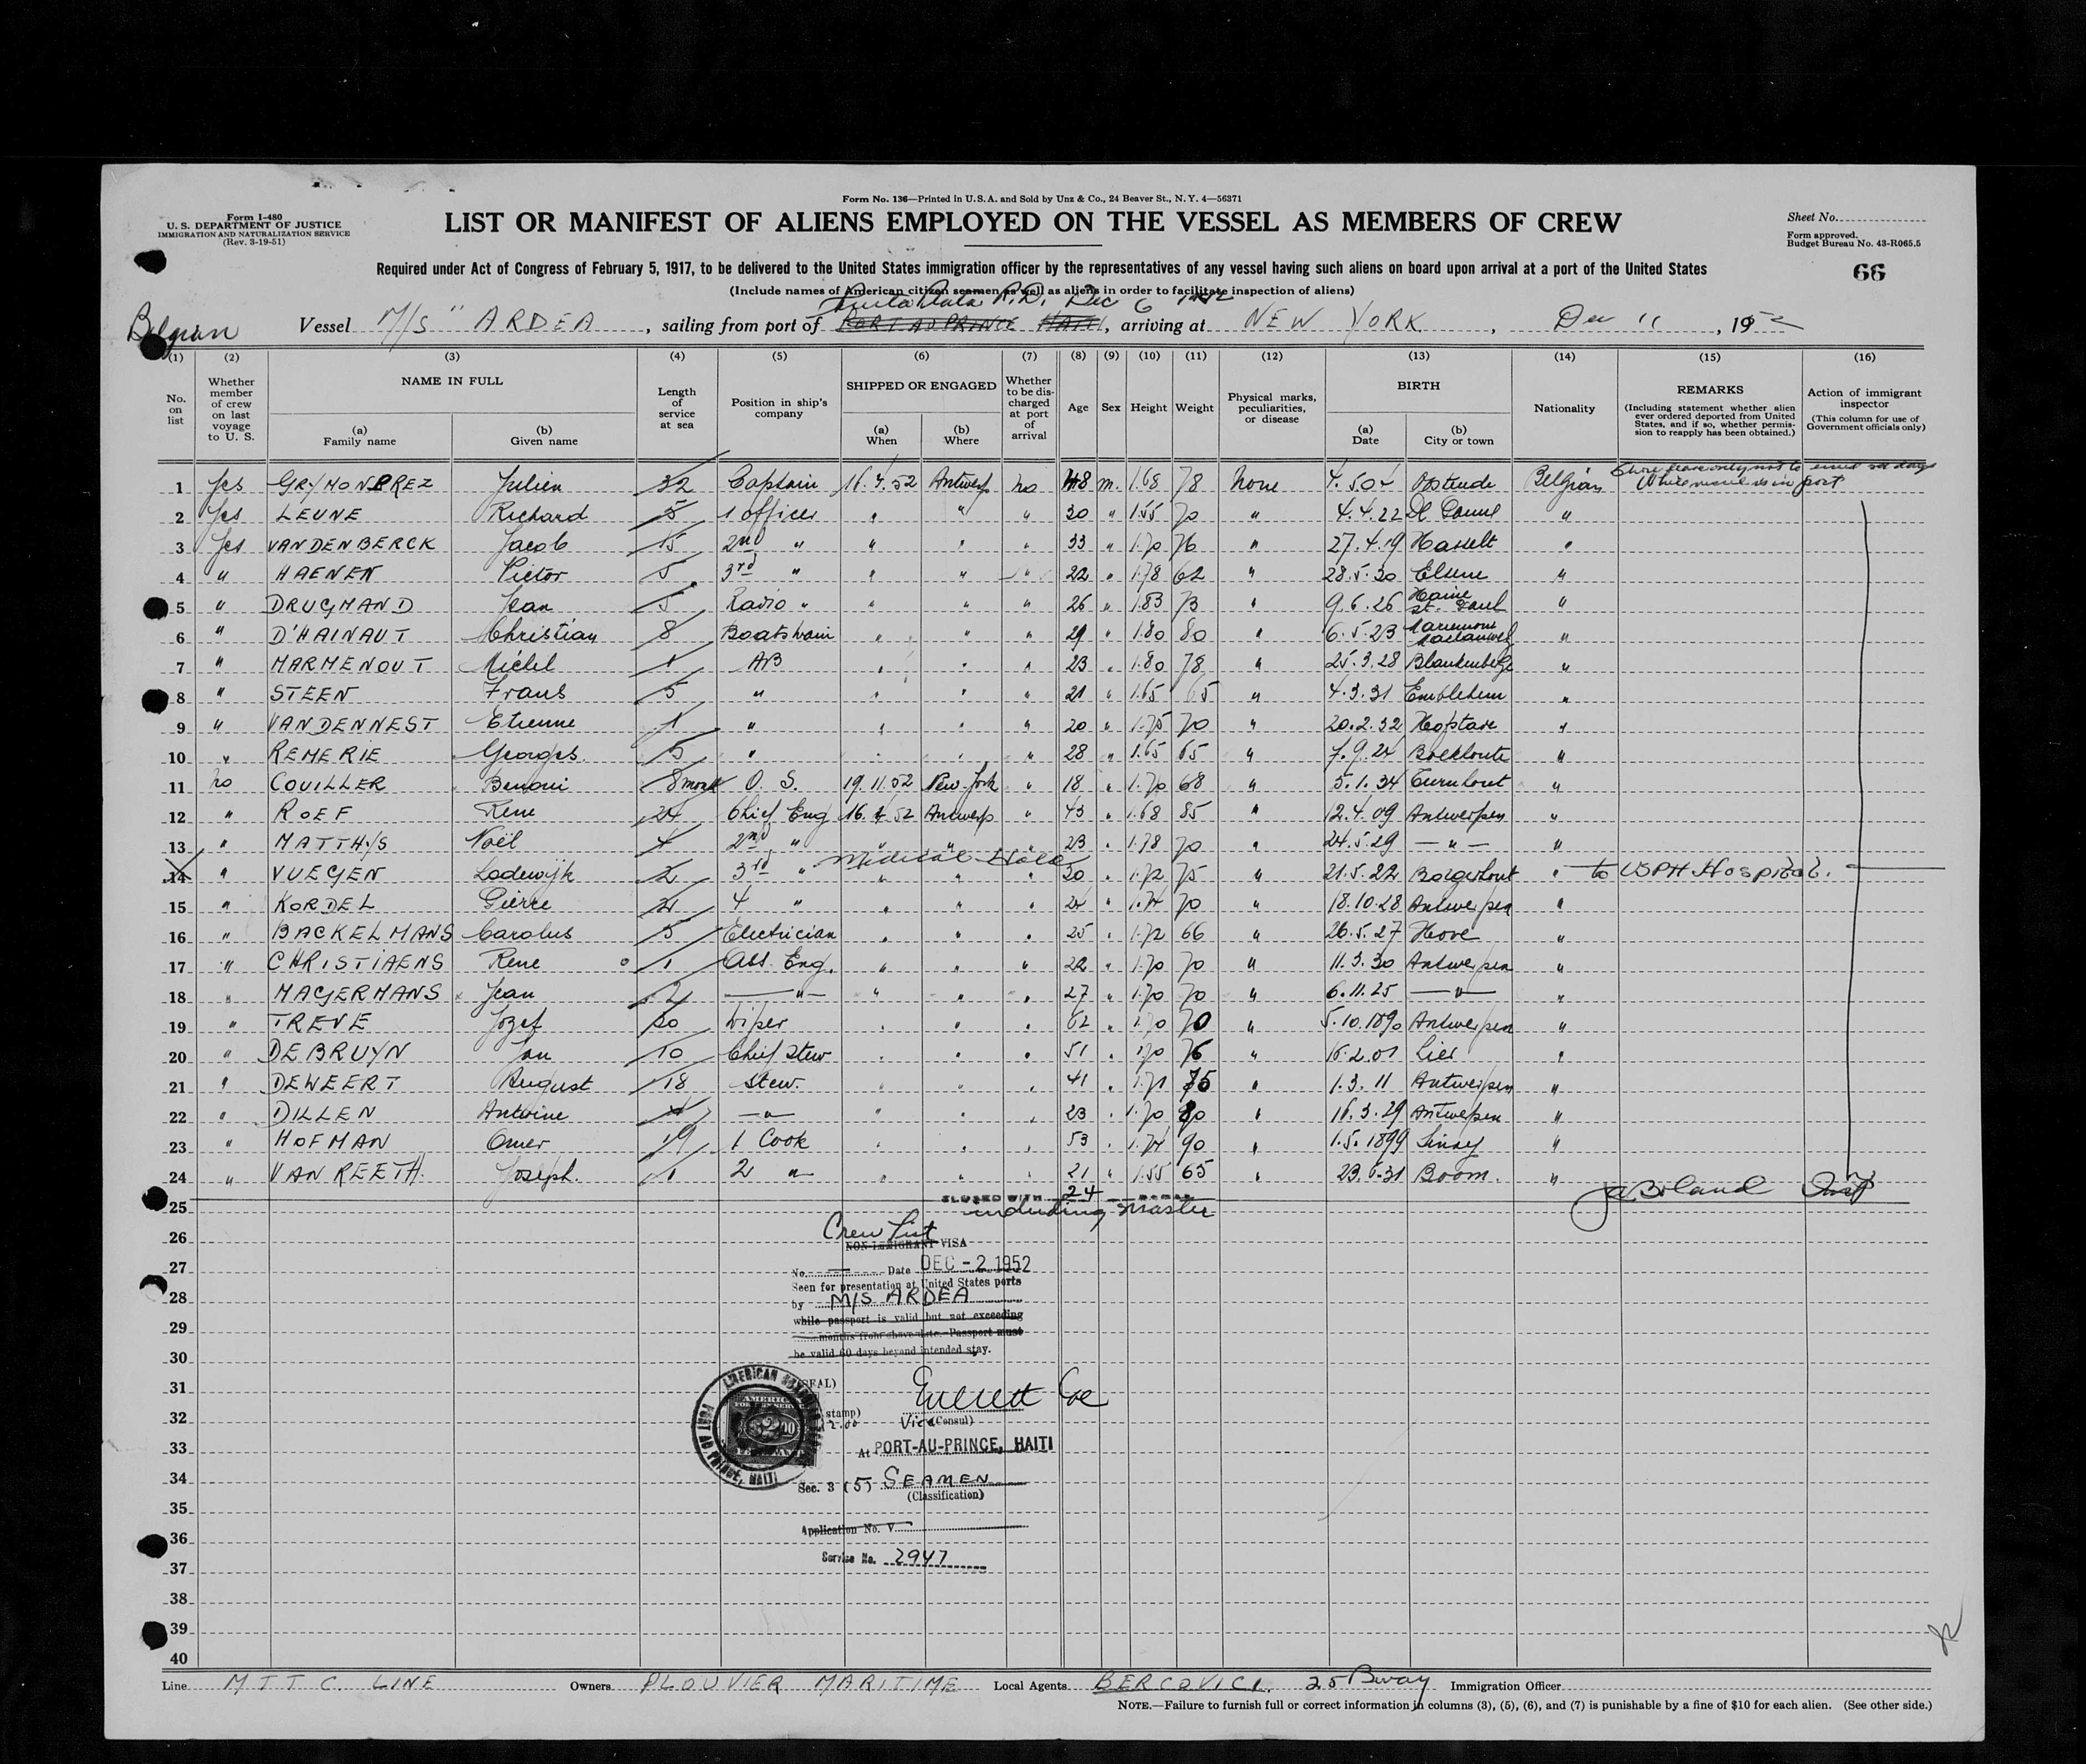 Form No. 136—Printed in U.S.A. and Sold by Unz & Co., 24 Beaver St., N. Y. 4—56371
Form I-480
U. S. DEPARTMENT OF JUSTICE
IMMIGRATION AND NATURALIZATION SERVICE
(Rev. 3-19-51)
LIST OR MANIFEST OF ALIENS EMPLOYED ON THE VESSEL AS MEMBERS OF CREW
Sheet No.
Form approved.
Budget Bureau No. 43-R065.5
66
Required under Act of Congress of February 5, 1917, to be delivered to the United States immigration officer by the representatives of any vessel having such aliens on board upon arrival at a port of the United States
(Include names of American citizen seamen as well as aliens in order to facilitate inspection of aliens)
Plata R.D. Dec 6 1952
Belgian
Vessel M/S " ARDEA , sailing from port of PORT AU PRINCE HAITI, arriving at NEW YORK , Dec 11 , 1952
(1) (2) (3) (4) (5) (6) (7) (8) (9) (10) (11) (12) (13) (14) (15) (16)
No. on list
Whether member of crew on last voyage to U. S.
NAME IN FULL
(a) Family name
(b) Given name
Length of service at sea
Position in ship's company
SHIPPED OR ENGAGED
(a) When
(b) Where
Whether to be discharged at port of arrival
Age
Sex
Height
Weight
Physical marks, peculiarities, or disease
BIRTH
(a) Date
(b) City or town
Nationality
REMARKS
(Including statement whether alien ever ordered deported from United States, and if so, whether permission to reapply has been obtained.)
Action of immigrant inspector
(This column for use of Government officials only)
1 Yes GRYMONPREZ Julien 32 Captain 16.4.52 Antwerp no 48 m. 1.68 78 None 4.5.04 Ostende Belgian Shore leave only not to exceed days
While vessel is in port
2 Yes LEUNE Richard 5 1 officer " " " 30 " 1.55 70 " 4.4.22 "
3 Yes VANDENBERCK Jacob 15 2nd " " " " 33 " 1.70 76 " 27.4.19 Hasselt "
4 " HAENEN Victor 5 3rd " " " " 22 " 1.78 62 " 28.5.30 Elsene "
5 " DRUGMAND Jean 5 Radio " " " " 26 " 1.83 73 " 9.6.26 Haine St. Paul "
6 " D'HAINAUT Christian 8 Boatswain " " " 29 " 1.80 80 " 6.5.23 "
7 " MARMENOUT Michel 1 AB " " " 23 " 1.80 78 " 25.3.28 Blankenberge "
8 " STEEN Frans 5 " " " " 21 " 1.65 65 " 4.3.31 Emblehem "
9 " VANDENNEST Etienne 1 " " " " 20 " 1.75 70 " 20.2.32 Hofstade "
10 " REMERIE Georges 5 " " " " 28 " 1.65 65 " 7.9.24 Boekhoute "
11 no COUILLER Benoni 8 month O. S. 19.11.52 New-York " 18 " 1.70 68 " 5.1.34 Turnhout "
12 " ROEF Rene 24 Chief Eng 16.4.52 Antwerp " 43 " 1.68 85 " 12.4.09 Antwerpen "
13 " MATTHYS Noël 4 2nd " " " " 23 " 1.78 70 " 24.5.29 — " — "
Medical
14 " VUEGEN Lodewijk 2 3rd " " " " 30 " 1.72 75 " 21.5.22 Borgerhout " to USPH Hospital.
15 " KORDEL Pierre 4 " " " " 24 " 1.74 70 " 18.10.28 Antwerpen "
16 " BACKELMANS Carolus 5 Electrician " " " 25 " 1.72 66 " 26.5.27 Hove "
17 " CHRISTIAENS Rene 1 Ass. Eng. " " " 22 " 1.70 70 " 11.3.30 Antwerpen "
18 " MAGERMANS Jean 2 — " — " " " 27 " 1.70 70 " 6.11.25 — " — "
19 " TREVE Jozef 20 Wiper " " " 62 " 1.70 70 " 5.10.1890 Antwerpen "
20 " DE BRUYN Jan 10 Chief Stew " " " 51 " 1.70 76 " 16.2.01 Lier "
21 " DEWEERT August 18 Stew. " " " 41 " 1.71 75 " 1.3.11 Antwerpen "
22 " DILLEN Antoine 4 — " — " " " 23 " 1.70 80 " 16.3.29 Antwerpen "
23 " HOFMAN Omer 19 1 Cook " " " 53 " 1.74 90 " 1.5.1899 "
24 " VAN REETH. Joseph. 1 2 " " " " 21 " 1.55 65 " 23.6.31 Boom. "
25 CLOSED WITH 24 NAMES
including master
J A Boland Insp
26
27
28
29
30
31
32
33
34
35
36
37
38
39
40
Crew List
NON-IMMIGRANT VISA
No. — Date DEC - 2 1952
Seen for presentation at United States ports
by M/S ARDEA
while passport is valid but not exceeding
months from above date. Passport must
be valid 60 days beyond intended stay.
(SEAL)
Everett Coe
stamp)
2.00
Vice (Consul)
At PORT-AU-PRINCE, HAITI
Sec. 3 (5) SEAMEN
(Classification)
Application No. V
Service No. 2947
Line MTTC. LINE Owners PLOUVIER MARITIME Local Agents BERCOVICI. 25 Bway Immigration Officer
NOTE.—Failure to furnish full or correct information in columns (3), (5), (6), and (7) is punishable by a fine of $10 for each alien. (See other side.)